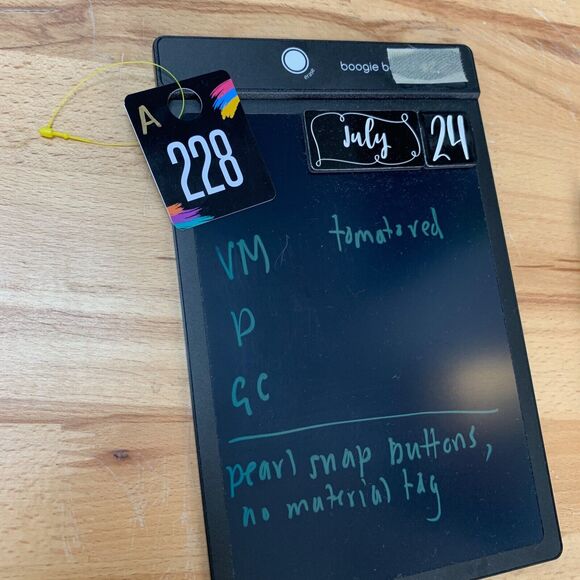 erase
boogie b
A
228
July 24
VM tomato red
D
GC
pearl snap buttons,
no material tag